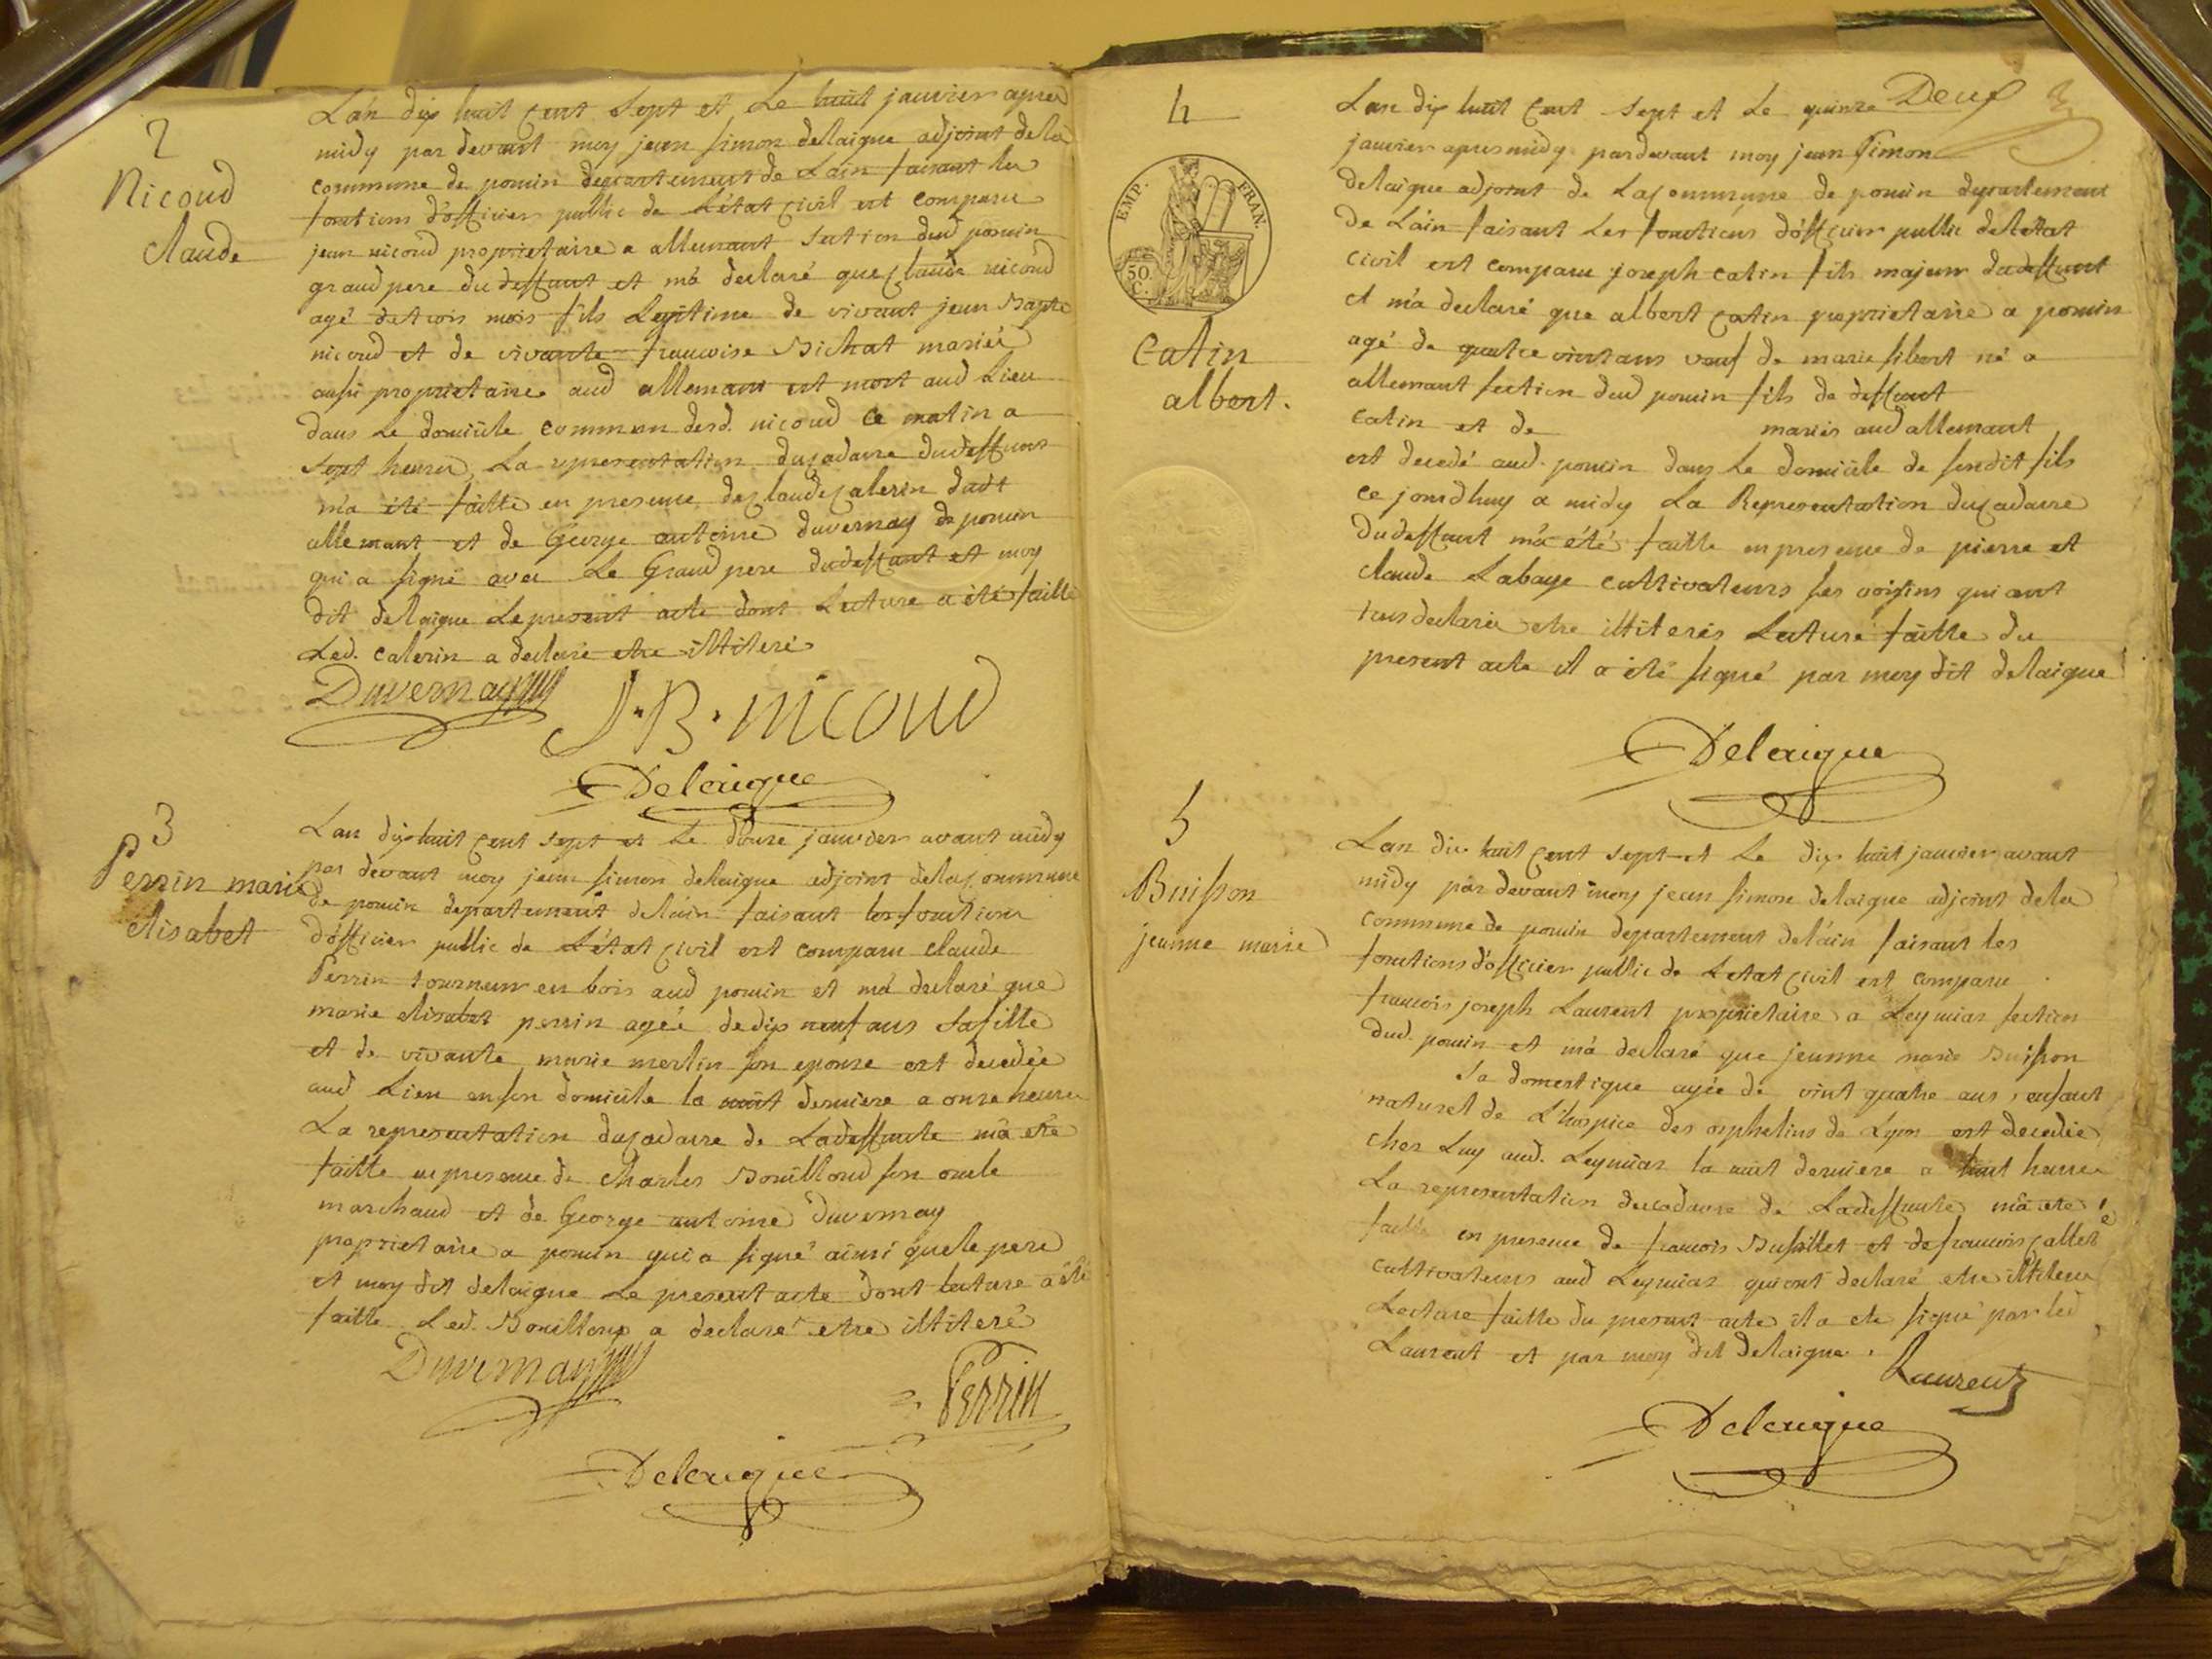 2
Nicoud
claude
L'an dix huit cent sept et Le huit janvier apres
midy par devant moy jean simon delaigue adjoint de la
commune de poncin departement de Lain faisant les
fontions d'officier public de L'état civil est comparu
jean nicoud proprietaire a allemant section dud poncin
grand pere du deffunt et m'a declaré que claude nicoud
agé de trois mois fils Legitime de vivant jean Bapte
nicoud et de vivante francoise Bichat mariés
aussi proprietaire aud allemant est mort aud Lieu
dans Le domicile commun desd. nicoud ce matin a
sept heures, La representation du cadavre dud deffunt
m'a été faitte en presence de claude calerin dudt
allemant et de George antoine duvernay de poncin
qui a signé avec Le Grand pere du deffunt et moy
dit delaigue Le present acte dont Lecture a été faitte
Led. calerin a declaré etre illiteré
Duvernay
J. B. nicoud
Delaigue
3
Perrin marie
elisabet
Lan dix huit cent sept et Le douze janvier avant midy
par devant moy jean simon delaigue adjoint de la commune
de poncin departement de l'ain faisant les fontions
d'officier public de L'état civil est comparu claude
Perrin tourneur en bois aud poncin et m'a declaré que
marie elisabet perrin agée de dix neuf ans sa fille
et de vivante marie merlin son epouse est decedée
aud Lieu en son domicile la nuit derniere a onze heures
La representation du cadavre de La deffunte m'a été
faitte en presence de charles Bouilloud son oncle
marchand et de George antoine duvernay
proprietaire a poncin qui a signé ainsi que le pere
et moy dit delaigue Le present acte dont lecture a été
faitte Led. Bouilloud a declaré etre illiteré
Duvernay
Perrin
Delaigue
4
EMP. FRAN.
50 C.
Catin
albert.
Lan dix huit cent sept et Le quinze Deux
janvier apres midy par devant moy jean simon
delaigue adjoint de La commune de poncin departement
de L'ain faisant Les fonctions d'officier public de l'etat
civil est comparu joseph catin fils majeur du deffunt
et m'a declaré que albert catin proprietaire a poncin
agé de quatre vint ans veuf de marie sibert né a
allemant section dud poncin fils de deffunt
catin et de mariés aud allemant
est decedé aud. poncin dans Le domicile de sondit fils
ce jourdhuy a midy La Representation du cadavre
du deffunt m'a été faitte en presence de pierre et
claude Labaye cultivateurs ses voisins qui ont
tous declarés etre illiterés Lecture faitte du
present acte il a été signé par moy dit delaigue
Delaigue
5
Buisson
jeanne marie
Lan dix huit cent sept et Le dix huit janvier avant
midy par devant moy jean simon delaigue adjoint de la
commune de poncin departement de l'ain faisant les
fonctions d'officier public de L'etat civil est comparu
francois joseph Laurent proprietaire a Leymiaz section
dud. poncin et m'a declaré que jeanne marie Buisson
sa domestique agée de vint quatre ans, enfant
naturel de L'hospice des orphelins de Lyon est decedée
chez Luy aud. Leymiaz la nuit derniere a huit heures
La representation du cadavre de La deffunte m'a été
faitte en presence de francois Bussillet et de francois callet
cultivateurs aud Leymiaz qui ont declaré etre illiteré
Lecture faitte du present acte il a été signé par led
Laurent et par moy dit delaigue.
Laurent
Delaigue